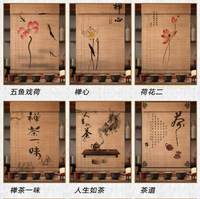 禅心
五鱼戏荷
禅心
荷花二
禅茶一味
人生如茶
荷
禅茶一味
人生如茶
茶道